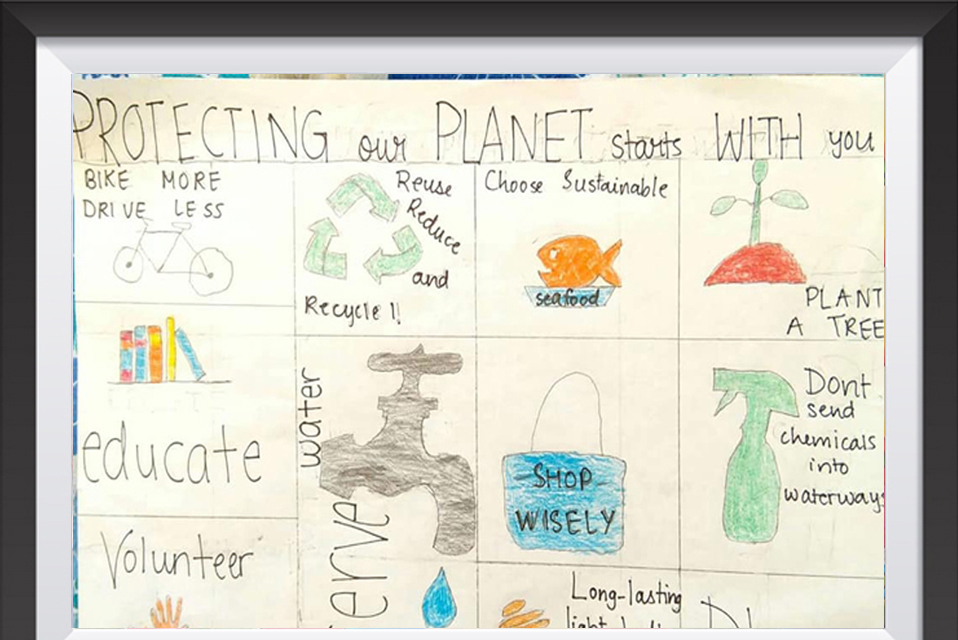 PROTECTING our PLANET starts WITH you
BIKE MORE
DRIVE LESS
Reuse
Reduce
and
Recycle !!
Choose Sustainable
seafood
PLANT
A TREE
educate
water
erve
SHOP
WISELY
Dont
send
chemicals
into
waterways
Volunteer
Long-lasting
light